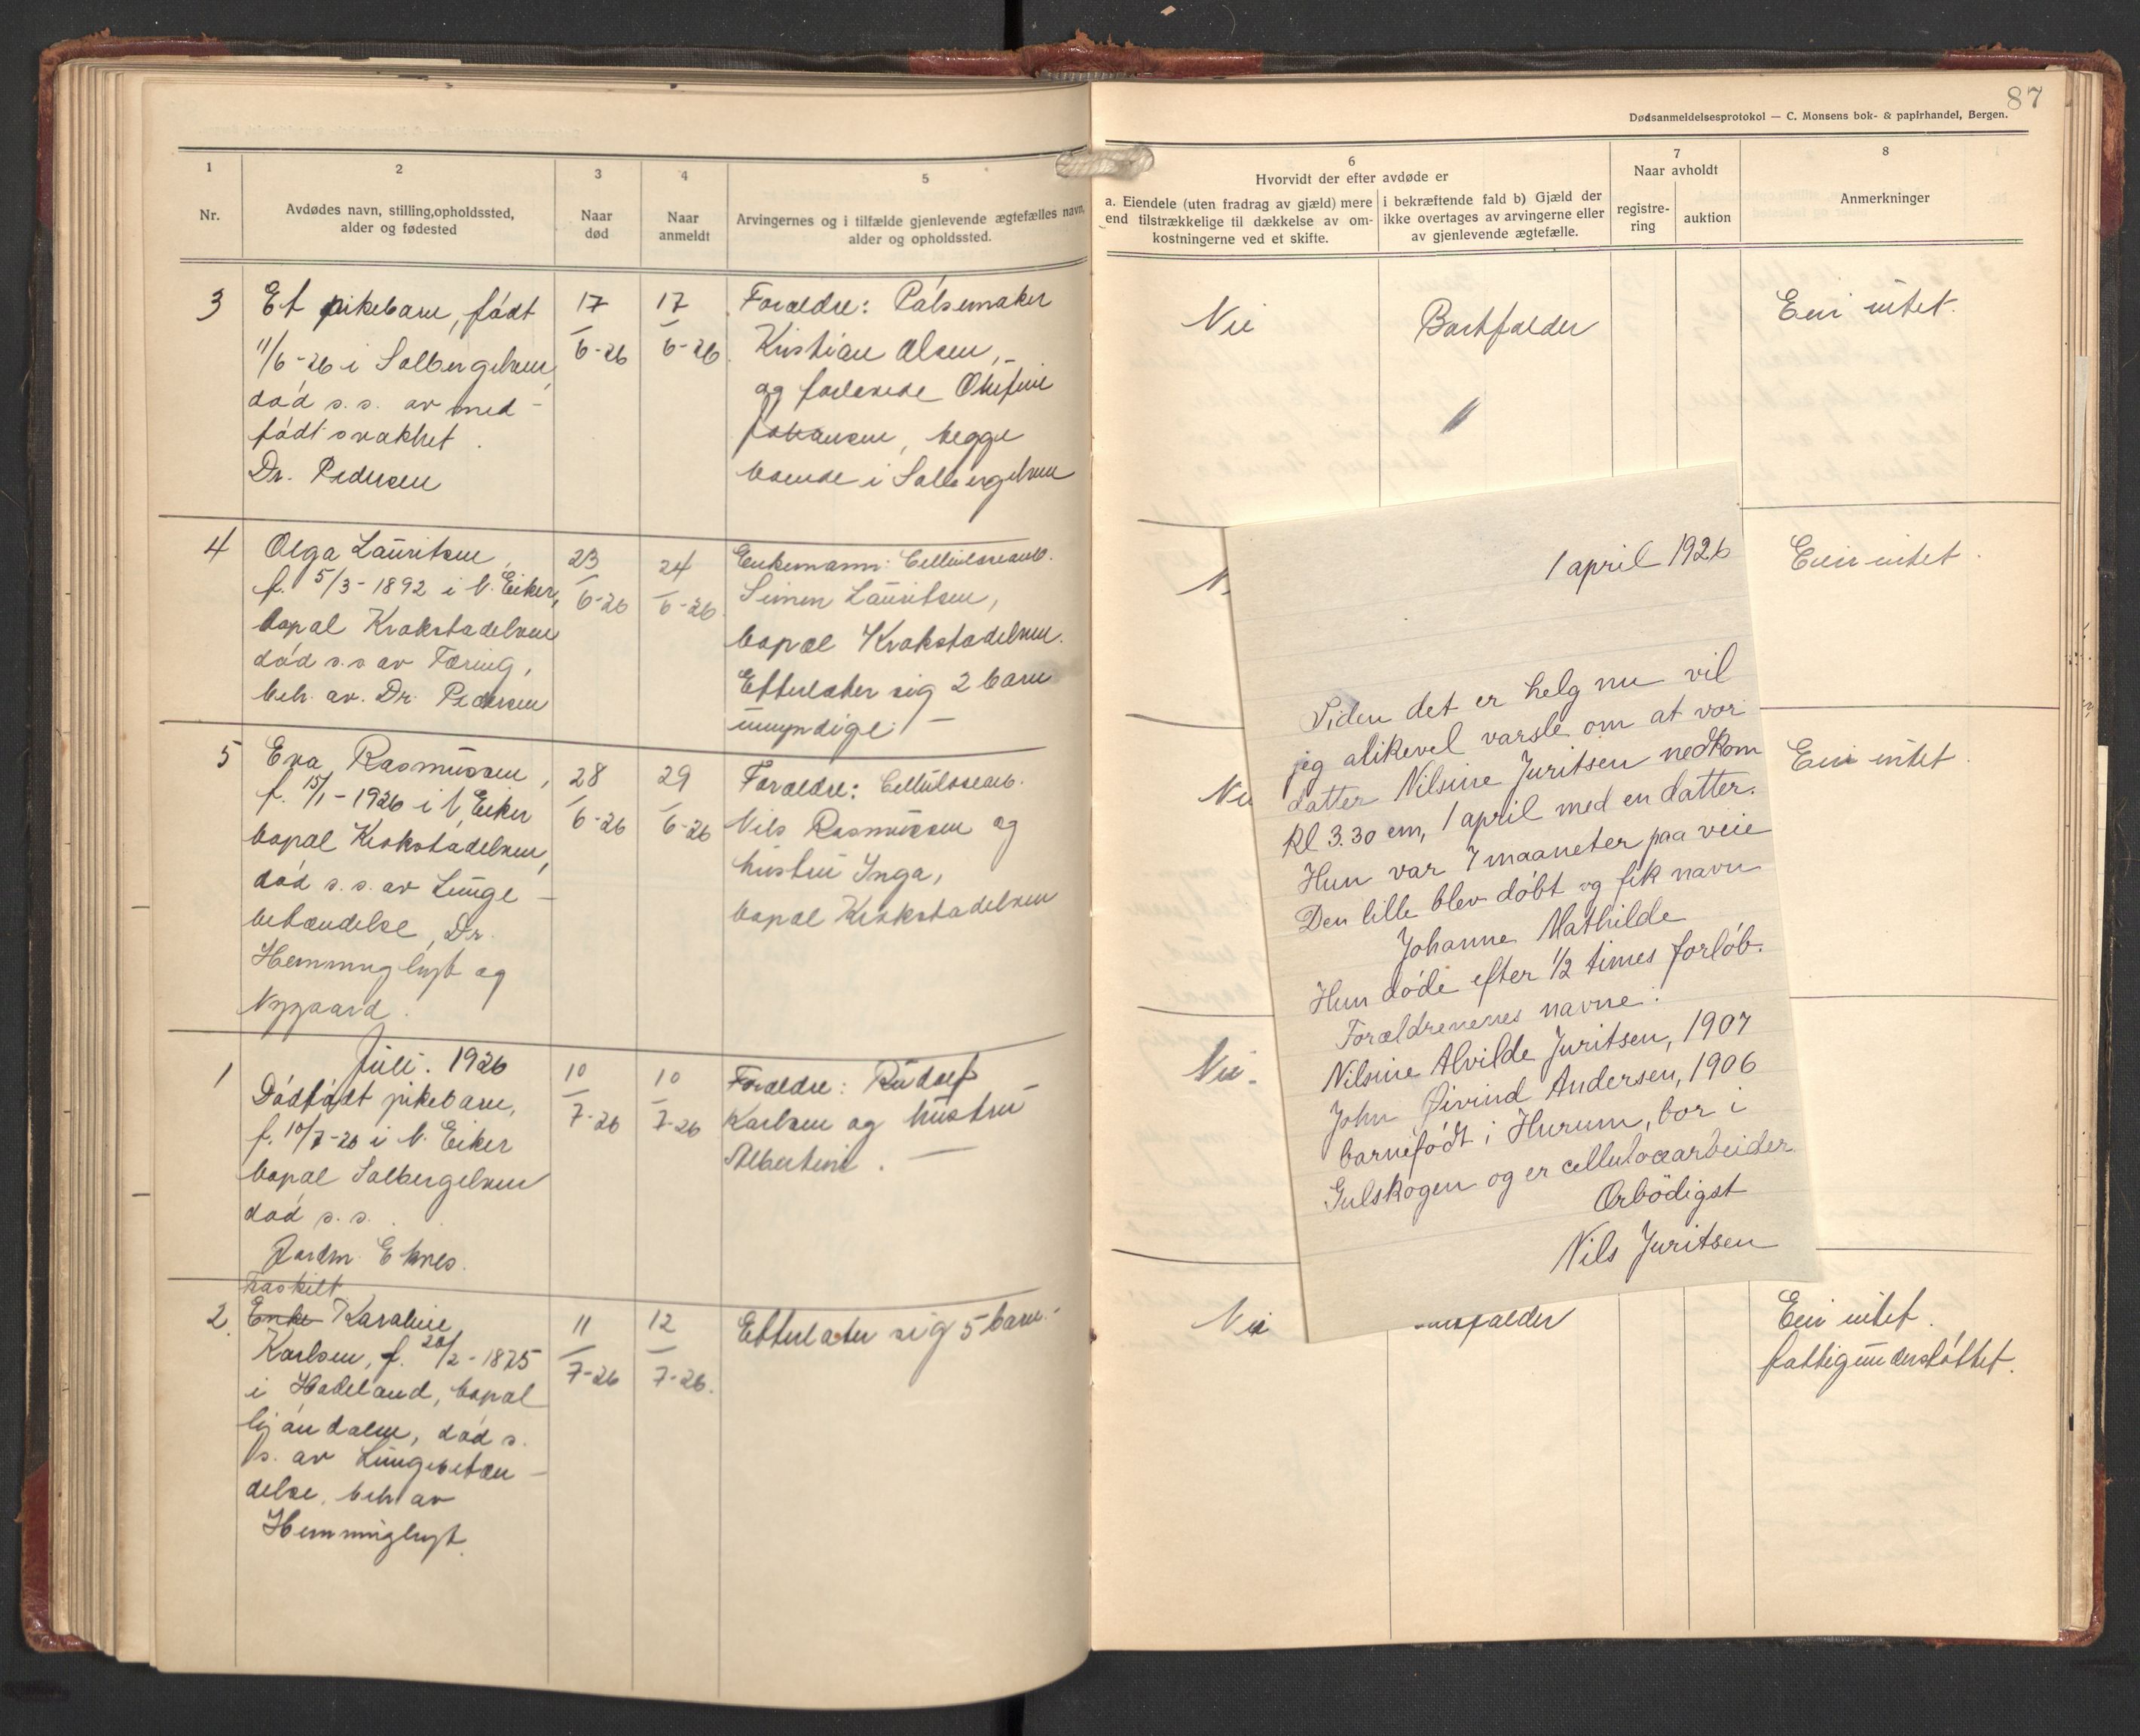 87
Dødsanmeldelsesprotokol — C. Monsens bok- & papirhandel, Bergen.
1
Nr.
2
Avdødes navn, stilling, opholdssted,
alder og fødested
3
Naar
død
4
Naar
anmeldt
5
Arvingernes og i tilfælde gjenlevende ægtefælles navn,
alder og opholdssted.
6
Hvorvidt der efter avdøde er
a. Eiendele (uten fradrag av gjæld) mere
end tilstrækkelige til dækkelse av om-
kostningerne ved et skifte.
i bekræftende fald b) Gjæld der
ikke overtages av arvingerne eller
av gjenlevende ægtefælle.
7
Naar avholdt
registre-
ring
auktion
8
Anmerkninger
3
Et pikebarn, født
11/6-26 i Solbergelven,
død s.s. av med-
født svakhet.
Dr. Pedersen
17/6-26
17/6-26
Forældre: Pølsemaker
Kristian Olsen,
og forlovede
Johansen, begge
boende i Solbergelven
Nei
Bortfalder
Eier intet.
4
Olga Lauritsen,
f. 5/3-1892 i N. Eiker,
bopæl Krokstadelven
død s.s av Tæring,
beh. av. Dr. Pedersen
23/6-26
24/6-26
Enkemann: Cellulosearb.
Simen Lauritsen,
bopæl Krokstadelven.
Efterlater sig 2 barn
umyndige. —
N
Eier intet.
5
Eva Rasmussen,
f. 15/1-1926 i N. Eiker
bopæl Krokstadelven,
død s.s. av Lunge-
betændelse, Dr.
Hemminghyt og
Nygaard.
28/6-26
29/6-26
Forældre: Cellulosearb.
Nils Rasmussen og
hustru Inga,
bopæl Krokstadelven
Nei
Eier intet.
Juli. 1926
1
Dødfødt pikebarn,
f. 10/7-26 i N. Eiker
bopæl Solbergelven
død s.s.
Jordm. Eknes.
10/7-26
10/7-26
Forældre: Rudolf
Karlsen og hustru
Albertine. —
Nei.
fraskilt
2.
Enke Karoline
Karlsen, f. 20/2-1875
i Hadeland, bopæl
Mjøndalen, død s.
s. av Lungebetæn-
delse, beh av
Hemminghyt.
11/7-26
12/7-26.
Efterlater sig 5 barn.-
Nei
falder
Eier intet.
fattigunderstøttet.
1 april 1926
Siden det er helg nu vil
jeg alikevel varsle om at vor
datter Nilsine Juritsen nedkom
kl 3.30 em, 1 april med en datter.
Hun var 7 maaneter paa veie
Den lille blev døbt og fik navn
Johanne Mathilde
Hun døde efter ½ times forløb.
Forældrenenes navne:
Nilsine Alvilde Juritsen, 1907
John Øivind Andersen, 1906
barnefødt i Hurum, bor i
Gulskogen og er celluloæarbeider.
Ærbödigst
Nils Juritsen